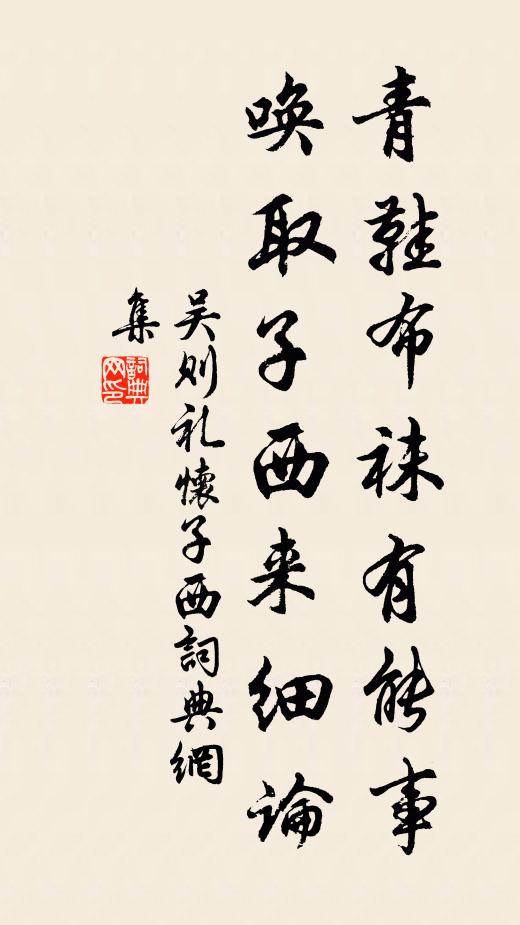 青鞋布袜有能事
唤取子西来细論
吴则礼懷子西詞典網
集
詞典
网印